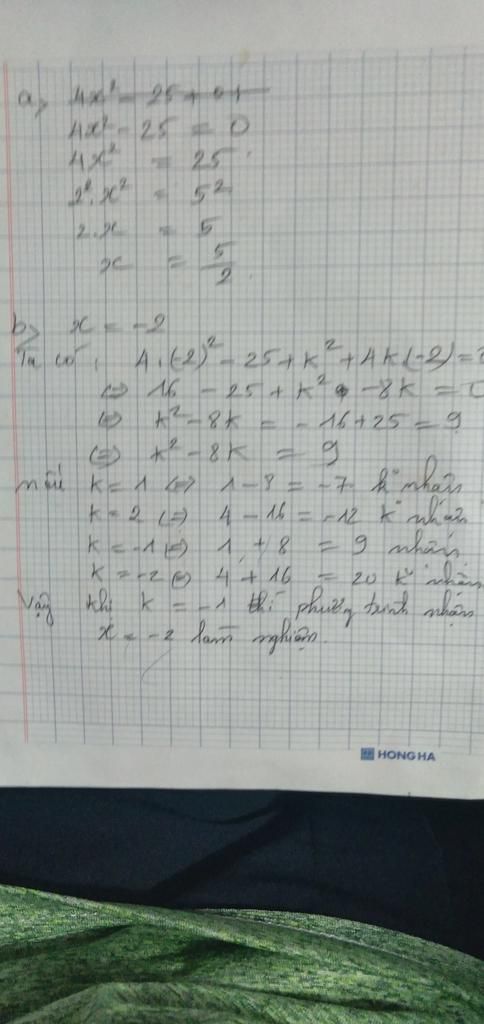 a, 4x² - 25 + 0 +
4x² - 25 = 0
4x² = 25
2².x² = 5²
2.x = 5
x = 5/2
b> x = -2
Ta có: 4.(-2)² - 25 + k² + 4k(-2) =
⇔ 16 - 25 + k² - 8k =
⇔ k² - 8k = -16 + 25 = 9
⇔ k² - 8k = 9
nếu k = 1 ⇔ 1 - 8 = -7 k° nhận
k = 2 ⇔ 4 - 16 = -12 k° nhận
k = -1 ⇔ 1 + 8 = 9 nhận
k = -2 ⇔ 4 + 16 = 20 k° nhận
Vậy khi k = -1 thì phương trình nhận
x = -2 làm nghiệm.
HONG HA